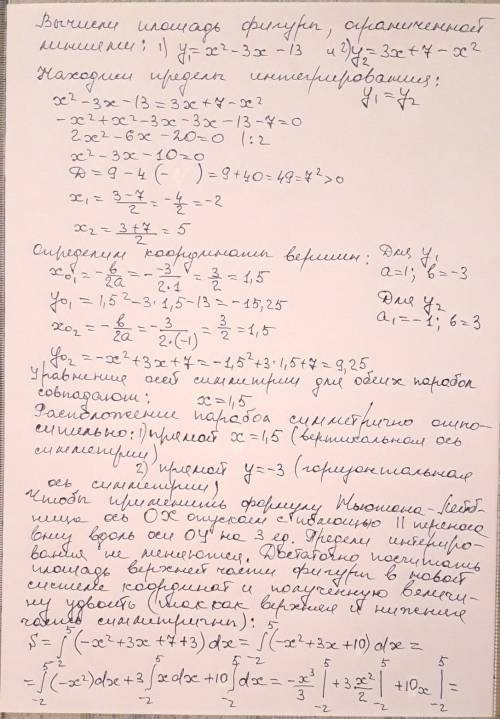 Вычисли площадь фигуры, ограниченной
линиями: 1) y₁=x²-3x-13 и 2) y₂=3x+7-x²
Находим пределы интегрирования:
x²-3x-13=3x+7-x² y₁=y₂
-x²+x²-3x-3x-13-7=0
2x²-6x-20=0 |:2
x²-3x-10=0
D=9-4(- )=9+40=49=7²>0
x₁=(3-7)/2=-4/2=-2
x₂=(3+7)/2=5
Определим координаты вершин: Для y₁
x₀₁=-b/2a=-(-3)/(2·1)=3/2=1,5 a=1; b=-3
y₀₁=1,5²-3·1,5-13=-15,25 Для y₂
x₀₂=-b/2a=-3/(2·(-1))=3/2=1,5 a₁=-1; b=3
y₀₂=-x²+3x+7=-1,5²+3·1,5+7=9,25
Уравнение осей симметрии для обеих парабол
совпадают: x=1,5
Расположение парабол симметрично отно-
сительно: 1) прямой x=1,5 (вертикальная ось
симметрии)
2) прямой y=-3 (горизонтальная
ось симметрии)
Чтобы применить формулу Ньютона-Лейб-
ница ось OX опускаем с помощью || переноса
вниз вдоль оси OY на 3 ед. Пределы интегриро-
вания не меняются. Достаточно посчитать
площадь верхней части фигуры в новой
системе координат и полученную величи-
ну удвоить (так как верхняя и нижняя
части симметричны):
S=∫₋₂⁵(-x²+3x+7+3)dx=∫₋₂⁵(-x²+3x+10)dx=
=∫₋₂⁵(-x²)dx+3∫₋₂⁵xdx+10∫₋₂⁵dx=-x³/3|₋₂⁵+3x²/2|₋₂⁵+10x|₋₂⁵=